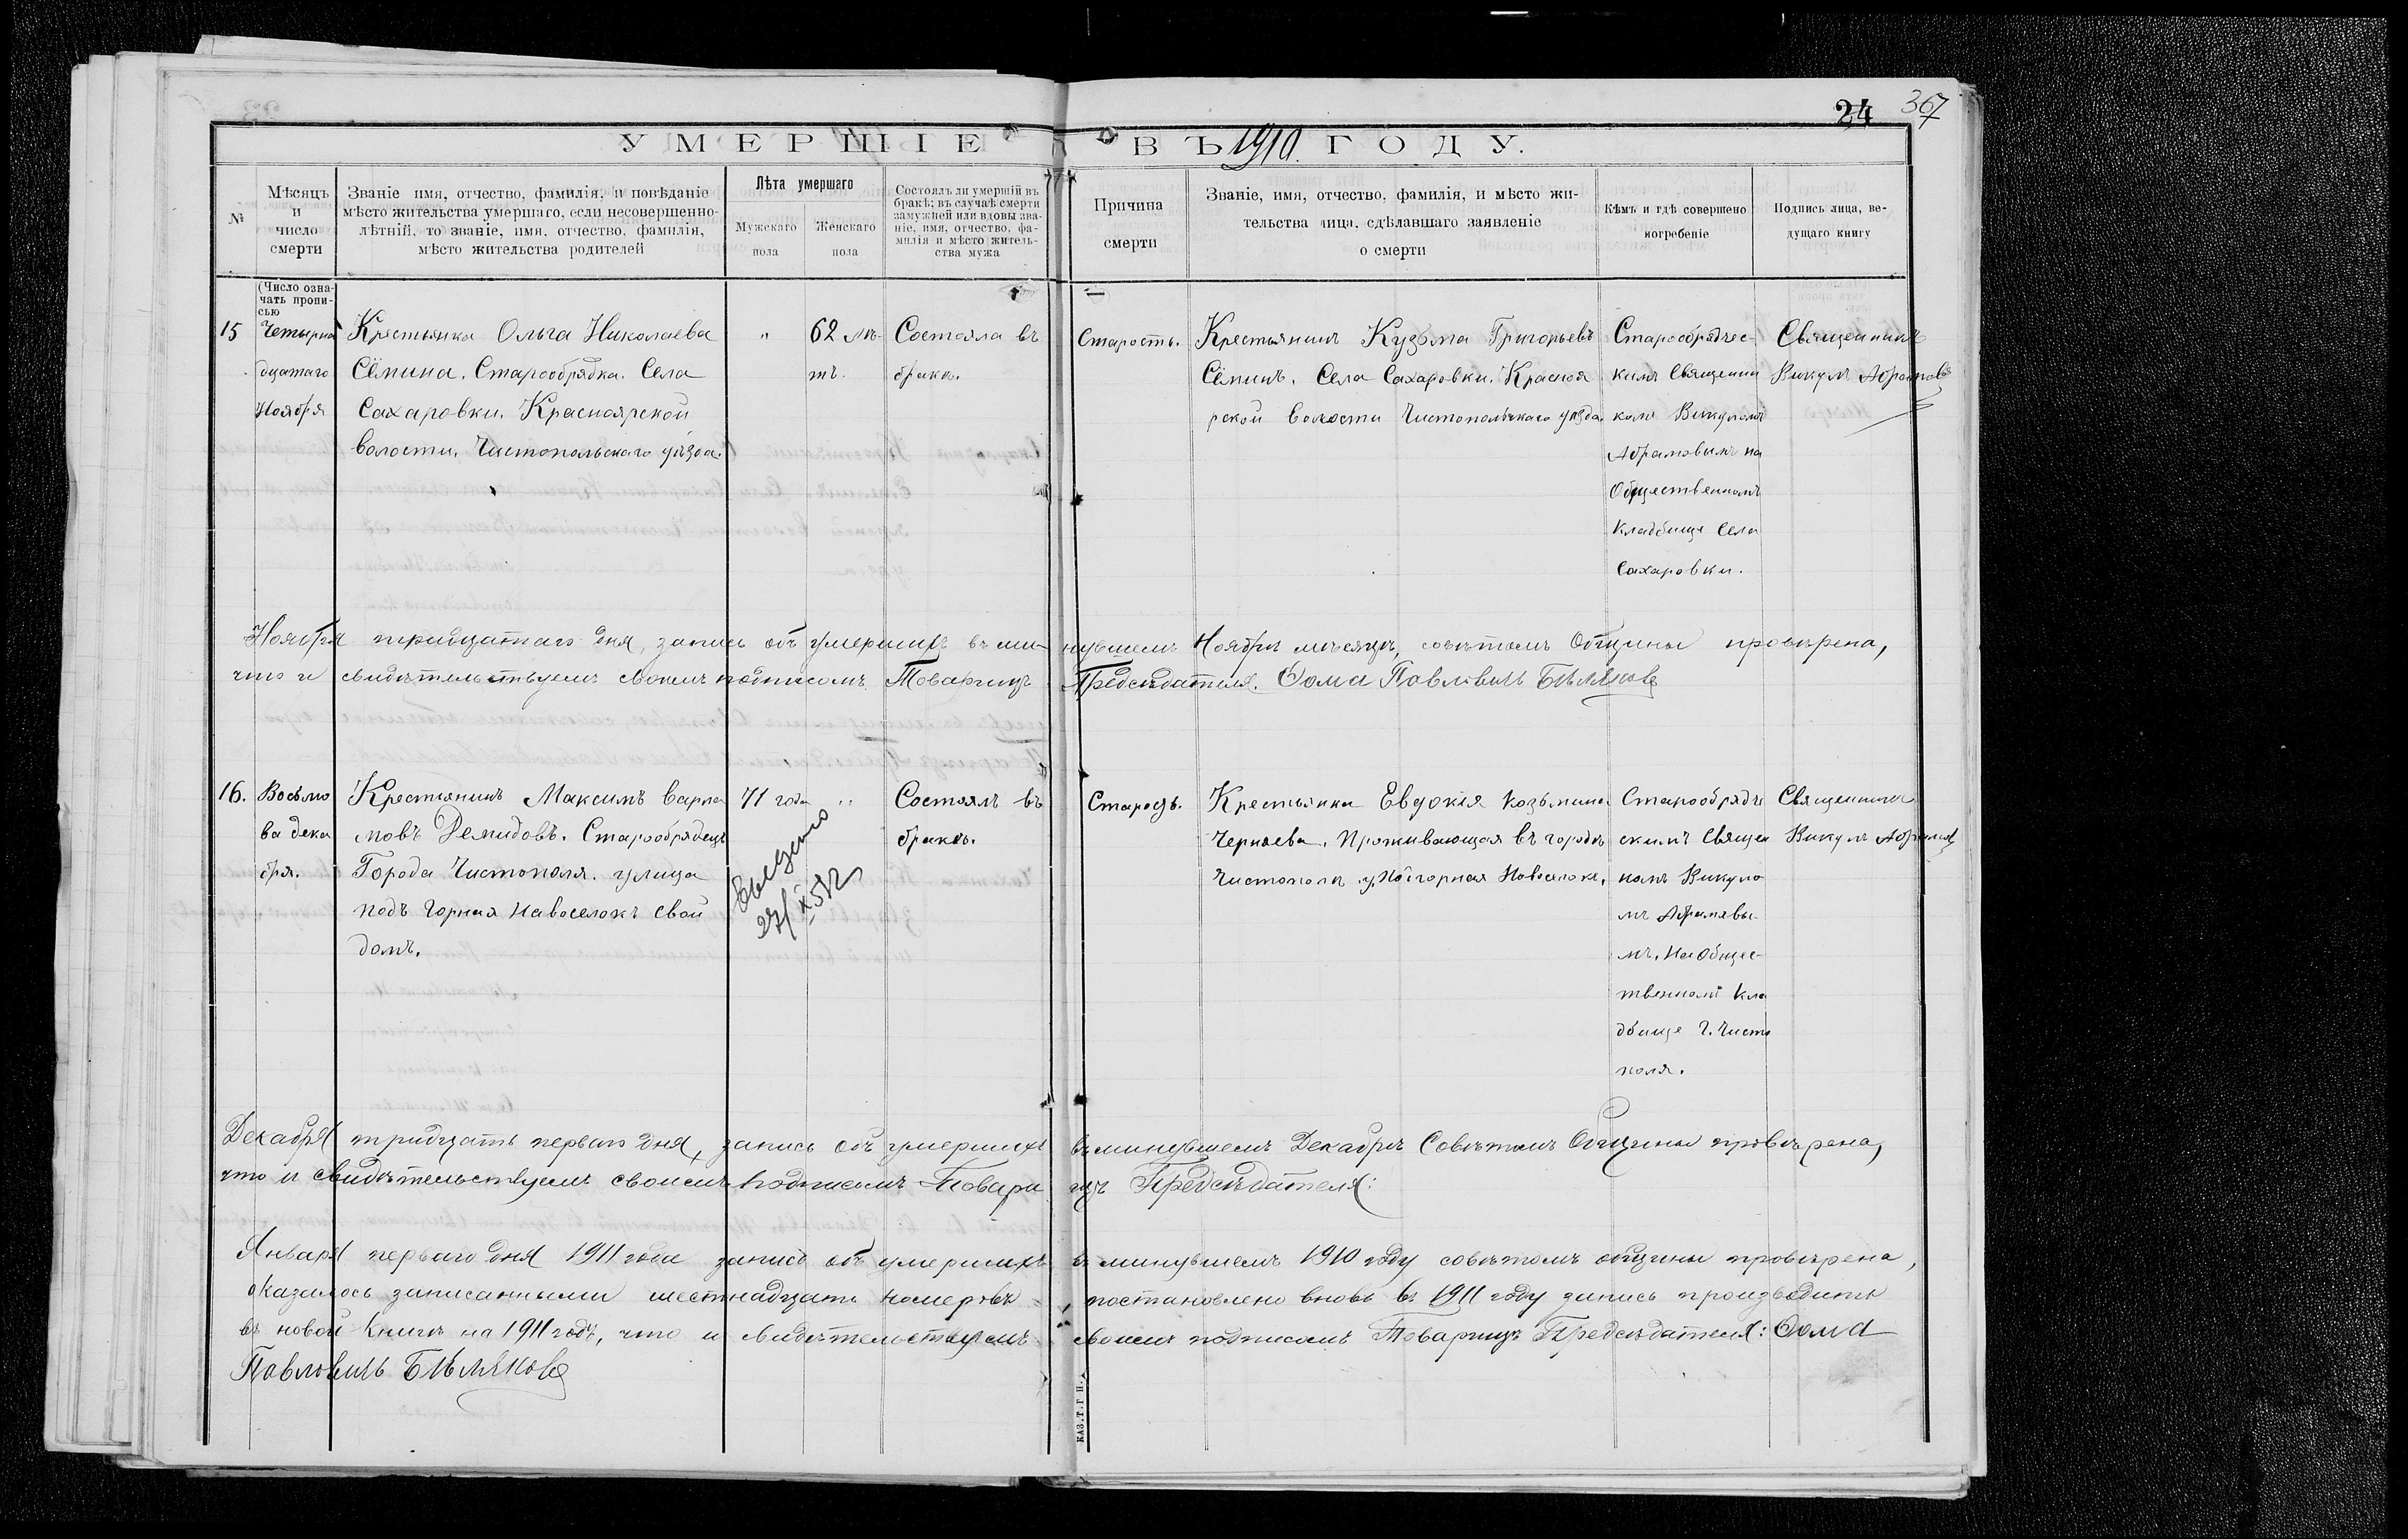 24 367
УМЕРШІЕ ВЪ 1910 ГОДУ.
№
Мѣсяцъ
и
число
смерти
Званіе имя, отчество, фамилія, и повѣданіе
мѣсто жительства умершаго, если несовершенно-
лѣтній, то званіе, имя, отчество, фамилія,
мѣсто жительства родителей
Лѣта умершаго
Мужскаго
пола
Женскаго
пола
Состоялъ ли умершій въ
бракѣ; въ случаѣ смерти
замужней или вдовы зва-
ніе, имя, отчество, фа-
милія и мѣсто житель-
ства мужа
Причина
смерти
Званіе, имя, отчество, фамилія, и мѣсто жи-
тельства лица, сдѣлавшаго заявленіе
о смерти
Кѣмъ и гдѣ совершено
погребеніе
Подпись лица, ве-
дущаго книгу
(Число озна-
чать пропи-
сью
15
Четырна
дцатаго
Ноября
Крестьянка Ольга Николаева
Сёмина. Старообрядка. Села
Сахаровки. Красноярской
волости. Чистопольскаго уѣзда.
"
62 лѣ-
тъ.
Состояла въ
бракѣ.
Старость.
Крестьянинъ Кузьма Григорьевъ
Сёминъ. Села Сахаровки. Красноя
рской волости Чистопольскаго уѣзда.
Старообрядчес-
кимъ Священни
комъ Викуломъ
Абрамовымъ на
Общественномъ
Кладбище Села
Сахаровки.
Священникъ
Викулъ Абрамовъ
Ноября тридцатаго дня, запись объ умершихъ въ ми- нувшемъ Ноябрѣ мѣсяцѣ, совѣтомъ Общины провѣрена,
что и свидѣтельствуемъ своемъ подписомъ Товарищъ Предсѣдателя. Ѳома Павловичъ Бѣляковъ
16.
Восьмо
ва дека
бря.
Крестьянинъ Максимъ Варла
мовъ Демидовъ. Старообрядецъ
Города Чистополя. улица
подъ Горная Навоселокъ свой
домъ.
71 года
"
27/X
Состоялъ въ
бракѣ.
Старость.
Крестьянка Евдокія Козьмина
Черняева. Проживающая въ городѣ
Чистополѣ у. Подгорная Новоселокъ.
Старообрядче
скимъ Священ
номъ Викуло
мъ Абрамовы-
мъ. На Общес-
твенномъ Кла
дбище г. Чисто
поля.
Священникъ
Викулъ Абрамовъ
Декабря тридцать первого дня, запись объ умершихъ въ минувшемъ Декабрѣ Совѣтомъ Общины провѣрена,
что и свидѣтельствуемъ своемъ подписомъ Товари щъ Предсѣдателя:
Января первого дня 1911 года запись объ умершихъ въ минувшемъ 1910 году совѣтомъ общины провѣрена,
оказалось записанными шестнадцать номеровъ постановлено вновь въ 1911 году запись производить
въ новой книгѣ на 1911 годъ, что и свидѣтельствуемъ своемъ подписомъ Товарищъ Предсѣдателя: Ѳома
Павловичъ Бѣляковъ
КАЗ. Т. Г. П.